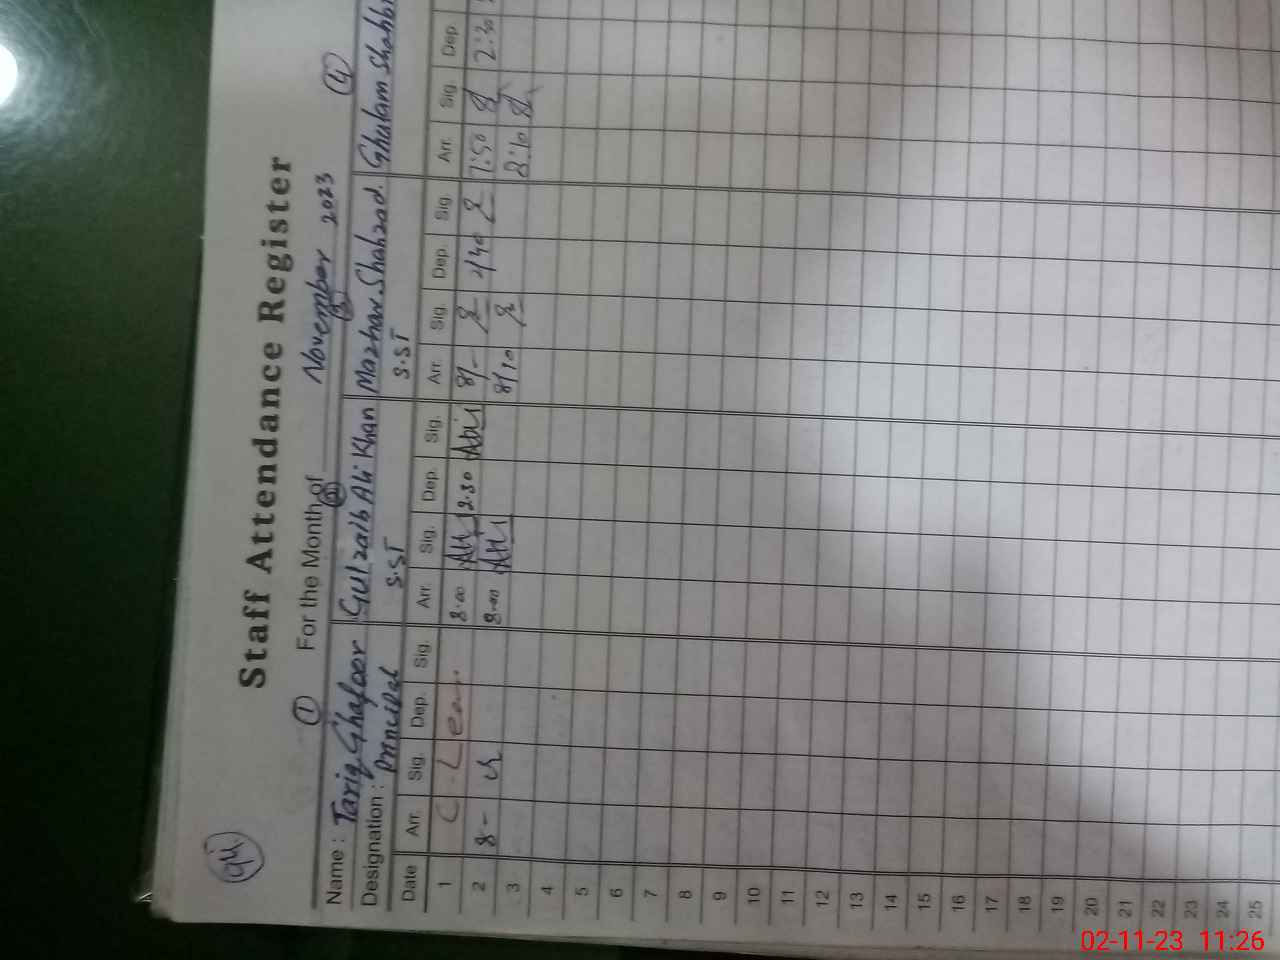 Staff Attendance Register
For the Month of November 2023
1 2 3 4
Name : Tariq Ghafoor Gulzaib Ali Khan Mazhar Shahzad Ghulam Shabbi
Designation : Principal S.ST S.ST
Date Arr. Sig. Dep. Sig. Arr. Sig. Dep. Sig. Arr. Sig. Dep. Sig. Arr. Sig. Dep.
1 C. Leave 8.00 Ali 2.30 8/- 2/40 7:50 2:30
2 8- 8.00 Ali 8/10 8:10
3
4
5
6
7
8
9
10
11
12
13
14
15
16
17
18
19
20
21
22
23
24
25
02-11-23 11:26